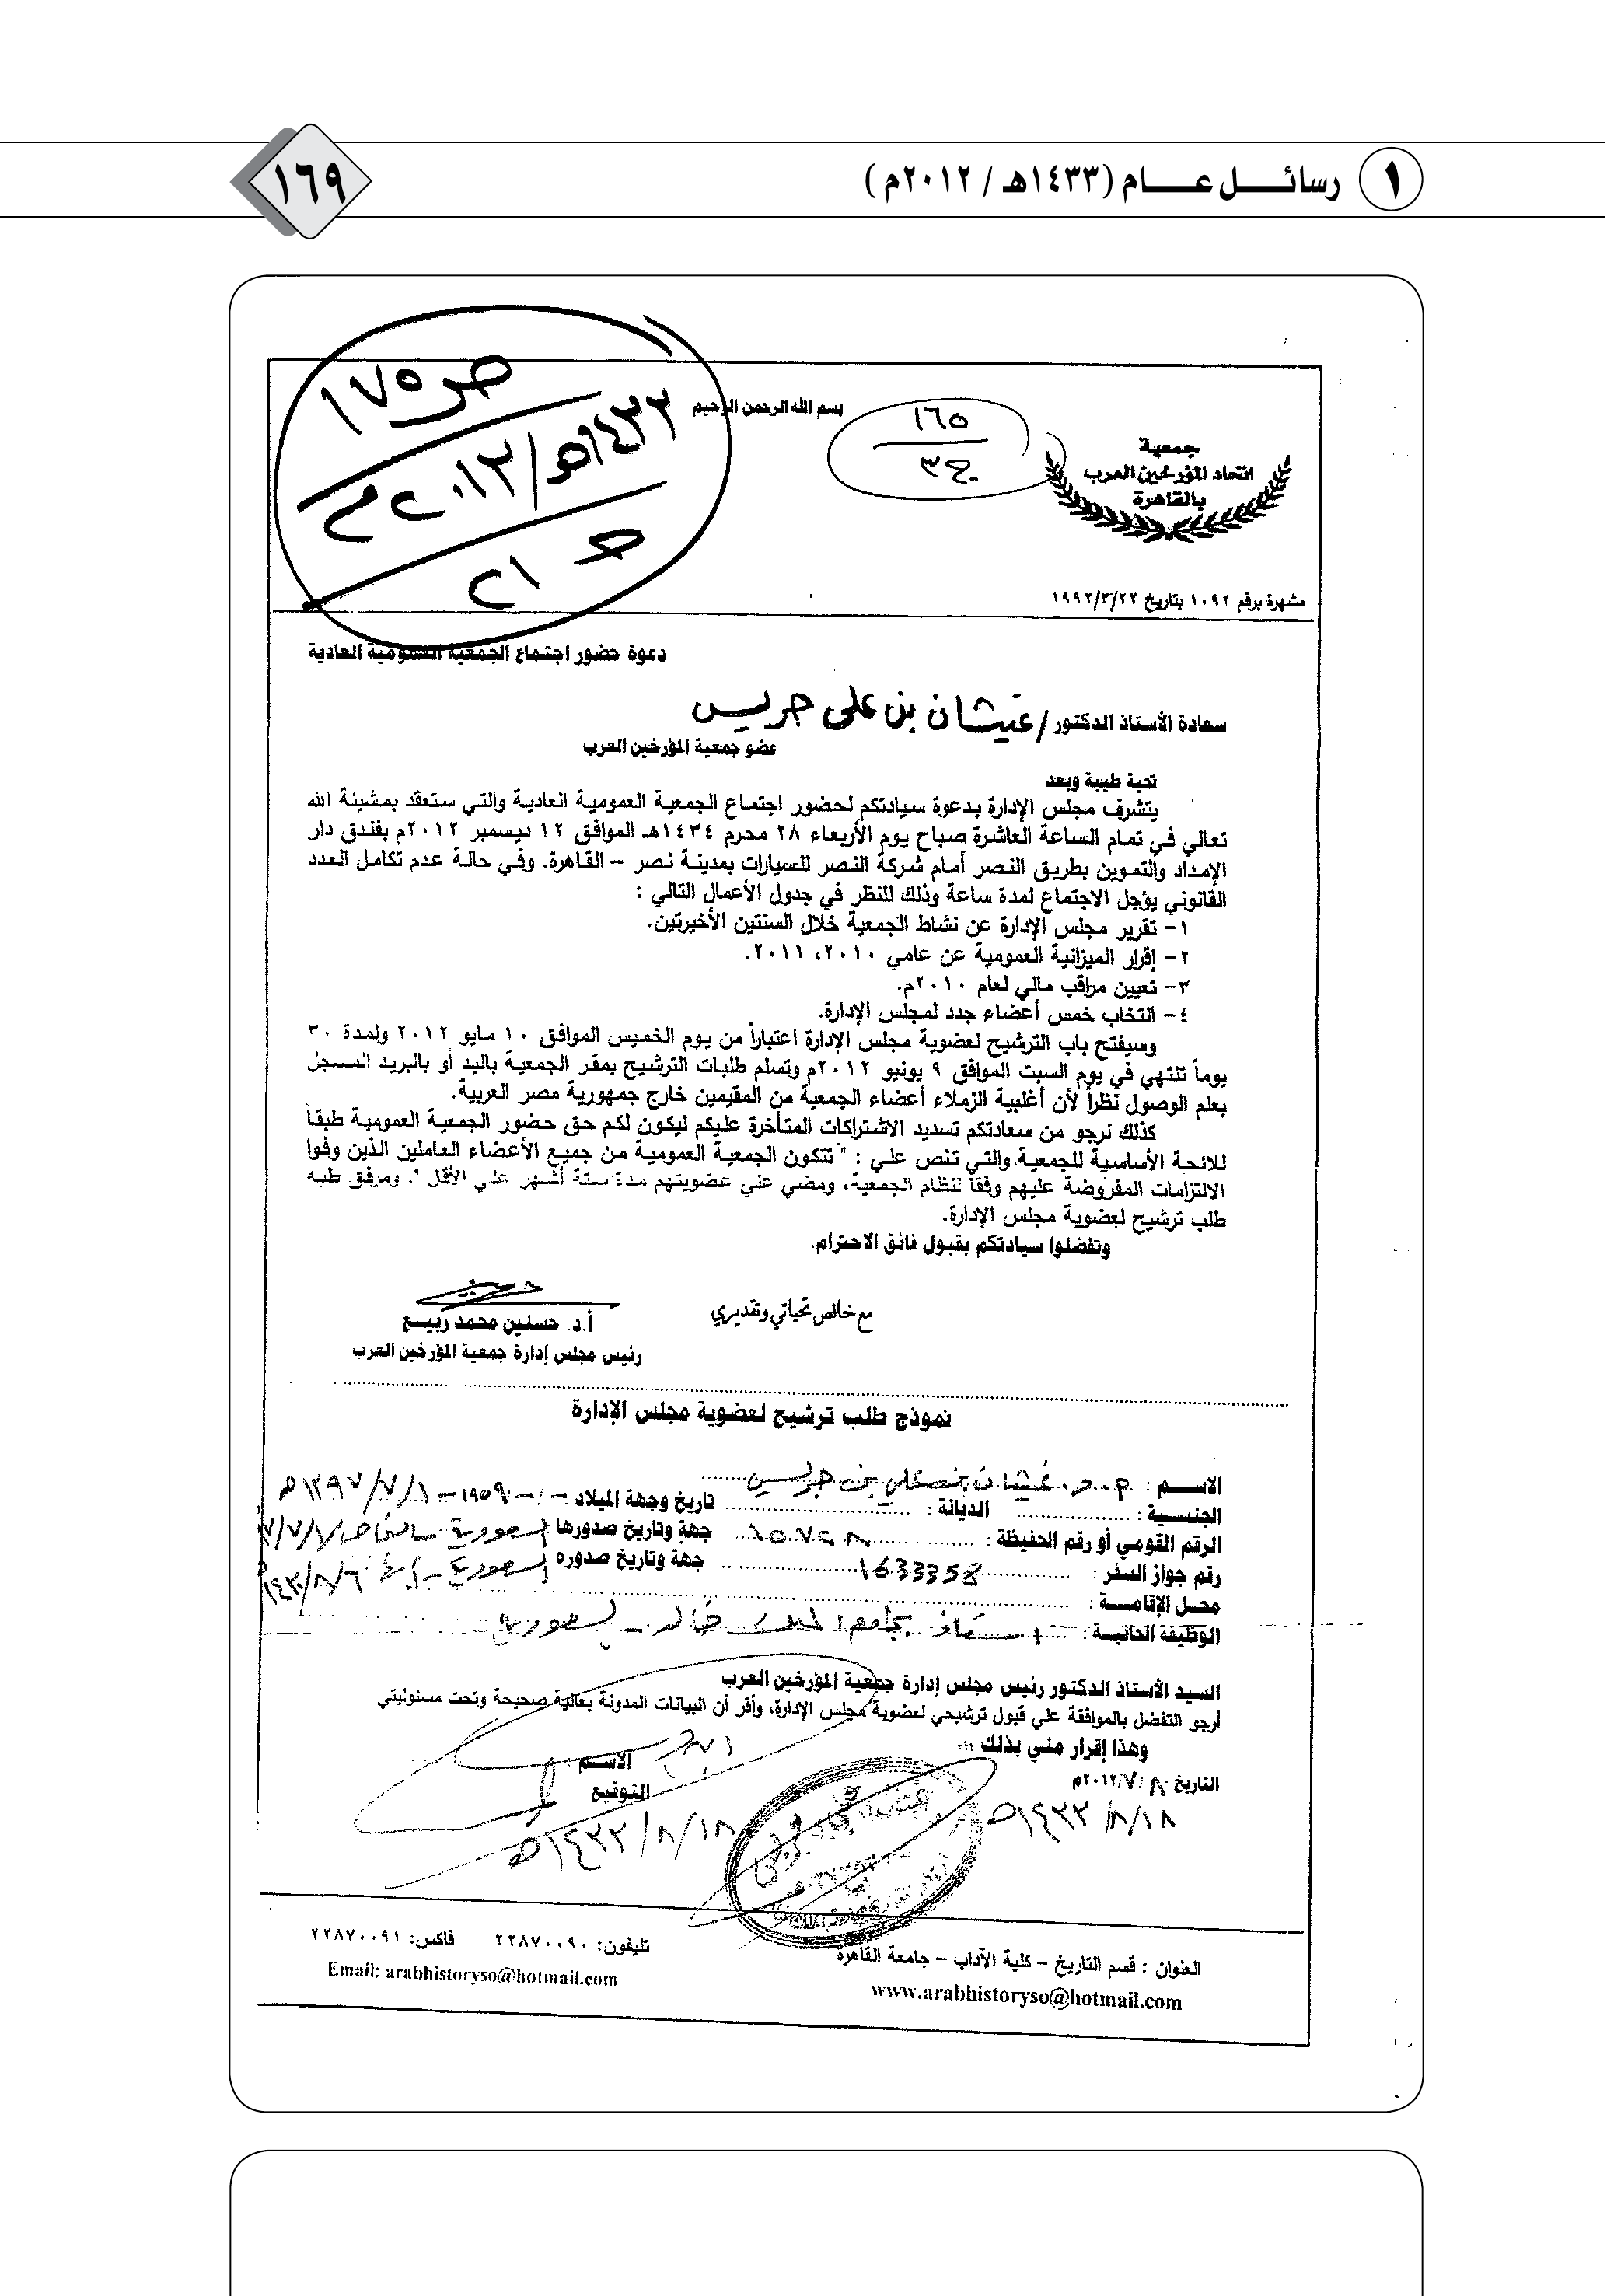 ١ رسائــــل عــــام (١٤٣٣هـ / ٢٠١٢م)
١٦٩
ص ١٧٥
١٤٣٣هـ/٢٠١٢م
ج ٢١
بسم الله الرحمن الرحيم
١٦٥
ج٣
جمعية
اتحاد المؤرخين العرب
بالقاهرة
مشهرة برقم ١٠٩٢ بتاريخ ١٩٩٢/٣/٢٢
دعوة حضور اجتماع الجمعية العمومية العادية
سعادة الأستاذ الدكتور / غيثان بن علي جريس
عضو جمعية المؤرخين العرب
تحية طيبة وبعد
يتشرف مجلس الإدارة بدعوة سيادتكم لحضور اجتماع الجمعية العمومية العادية والتي ستعقد بمشيئة الله
تعالي في تمام الساعة العاشرة صباح يوم الأربعاء ٢٨ محرم ١٤٣٤هـ الموافق ١٢ ديسمبر ٢٠١٢م بفندق دار
الإمداد والتموين بطريق النصر أمام شركة النصر للسيارات بمدينة نصر – القاهرة. وفي حالة عدم تكامل العدد
القانوني يؤجل الاجتماع لمدة ساعة وذلك للنظر في جدول الأعمال التالي :
١- تقرير مجلس الإدارة عن نشاط الجمعية خلال السنتين الأخيرتين.
٢- إقرار الميزانية العمومية عن عامي ٢٠١٠، ٢٠١١.
٣- تعيين مراقب مالي لعام ٢٠١٠م.
٤- انتخاب خمس أعضاء جدد لمجلس الإدارة.
وسيفتح باب الترشيح لعضوية مجلس الإدارة اعتباراً من يوم الخميس الموافق ١٠ مايو ٢٠١٢ ولمدة ٣٠
يوماً تنتهي في يوم السبت الموافق ٩ يونيو ٢٠١٢م وتسلم طلبات الترشيح بمقر الجمعية باليد أو بالبريد المسجل
بعلم الوصول نظراً لأن أغلبية الزملاء أعضاء الجمعية من المقيمين خارج جمهورية مصر العربية.
كذلك نرجو من سعادتكم تسديد الاشتراكات المتأخرة عليكم ليكون لكم حق حضور الجمعية العمومية طبقاً
للائحة الأساسية للجمعية والتي تنص علي : " تتكون الجمعية العمومية من جميع الأعضاء العاملين الذين وفوا
الالتزامات المفروضة عليهم وفقاً لنظام الجمعية، ومضي علي عضويتهم مدة ستة أشهر علي الأقل ". ومرفق طيه
طلب ترشيح لعضوية مجلس الإدارة.
وتفضلوا سيادتكم بقبول فائق الاحترام.
مع خالص تحياتي وتقديري
أ.د. حسنين محمد ربيـــع
رئيس مجلس إدارة جمعية المؤرخين العرب
نموذج طلب ترشيح لعضوية مجلس الإدارة
الاســـم : غيثان بن علي بن جريس
الجنســـية : الديانة : تاريخ وجهة الميلاد ١٩٥٩ – ١٣٩٧/٧/١هـ
الرقم القومي أو رقم الحفيظة : ١٥٧٢٨ جهة وتاريخ صدورها السعودية
رقم جواز السفر : 1633358 جهة وتاريخ صدوره السعودية – أبها ١٤٣٠/٨/٦هـ
محـل الإقامـــة :
الوظيفة الحالية : استاذ بجامعة الملك خالد – السعودية
السيد الأستاذ الدكتور رئيس مجلس إدارة جمعية المؤرخين العرب
أرجو التفضل بالموافقة علي قبول ترشيحي لعضوية مجلس الإدارة، وأقر أن البيانات المدونة بعاليه صحيحة وتحت مسئوليتي
وهذا إقرار مني بذلك ،،،
الاســـم
التاريخ ٨ /٧/ ٢٠١٢م
التوقيع
١٤٣٣/٨/١٨هـ
١٤٣٣/٨/١٨هـ
العنوان : قسم التاريخ – كلية الآداب – جامعة القاهرة
تليفون: ٢٢٨٧٠٠٩٠ فاكس: ٢٢٨٧٠٠٩١
www.arabhistoryso@hotmail.com
Email: arabhistoryso@hotmail.com